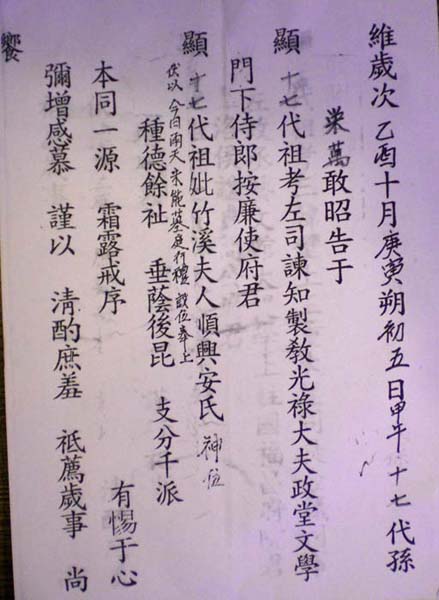 維歲次 乙酉十月庚寅朔初五日甲午 十七代孫
榮萬敢昭告于
顯 十七代祖考左司諫知製敎光祿大夫政堂文學
門下侍郎按廉使府君
顯 十七代祖妣竹溪夫人順興安氏 神位
伏以 今日雨天 未能墓庭行禮 設位奉上
種德餘祉 垂蔭後昆 支分千派
本同一源 霜露戒序 有惕于心
彌增感慕 謹以 淸酌庶羞 祗薦歲事 尚
饗